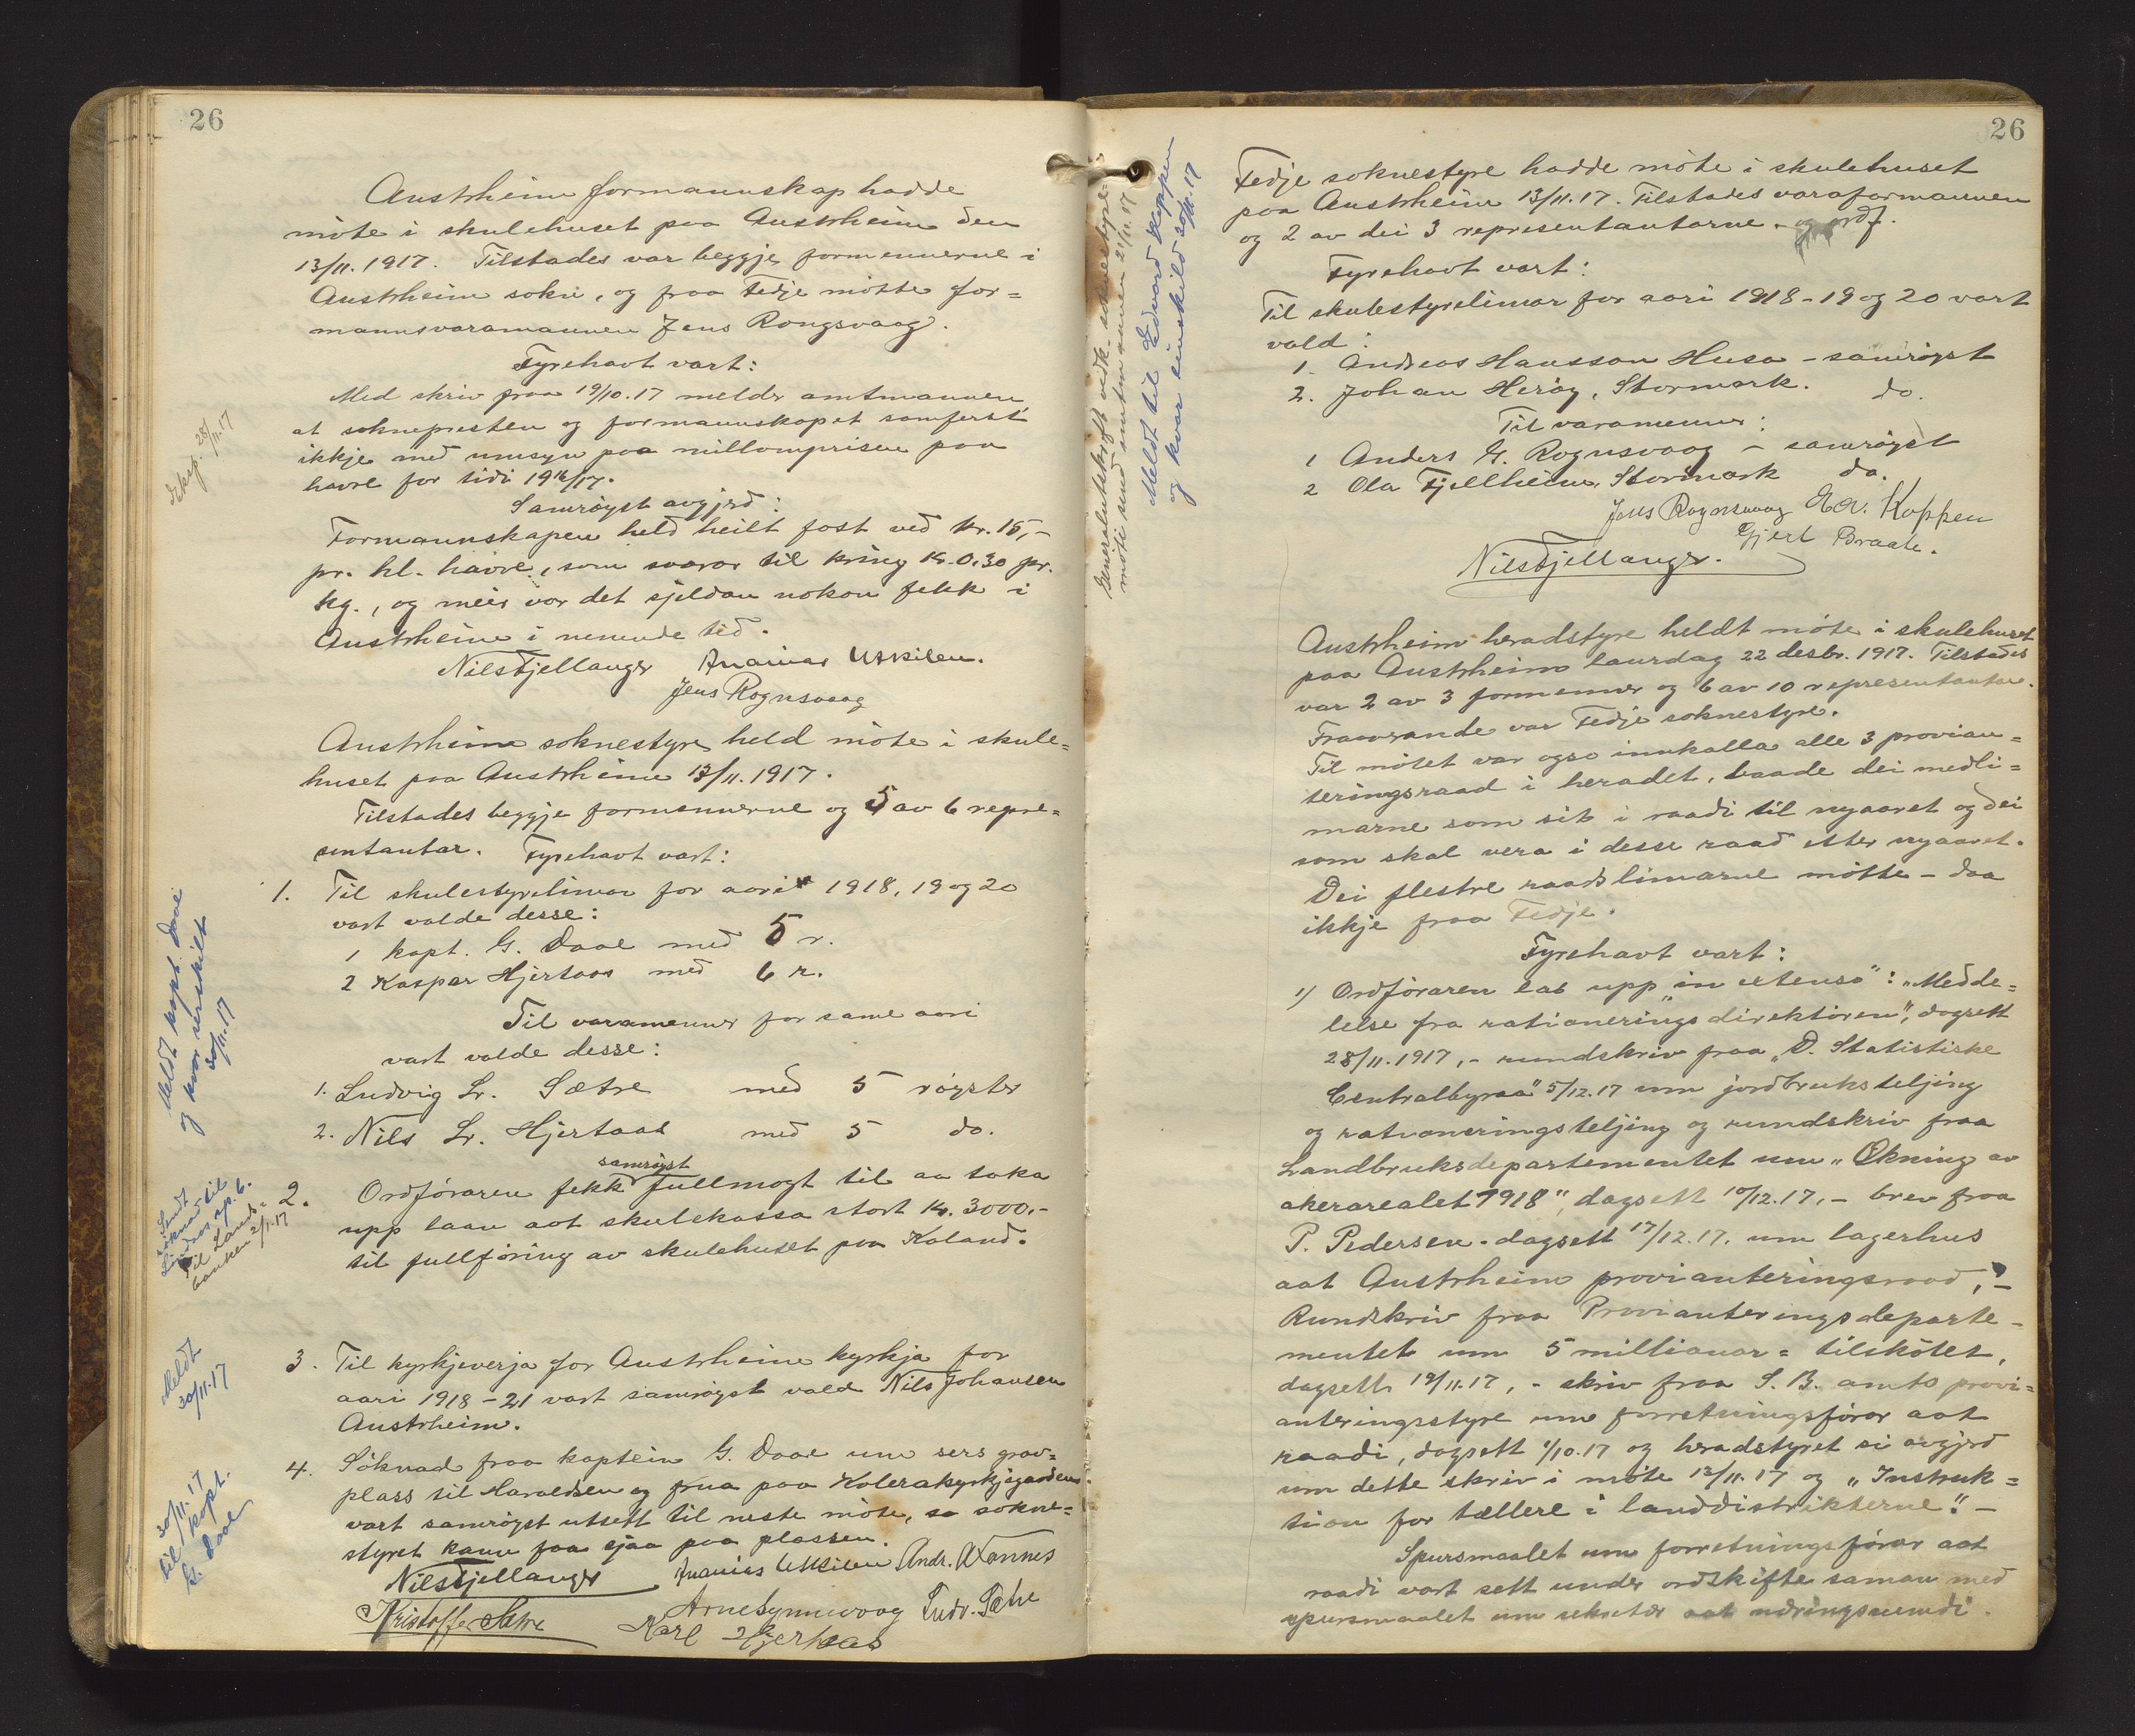 26
Austrheim formannskap hadde
møte i skulehuset paa Austrheim den
13/11.1917. Tilstades var beggje formennerne i
Austrheim sokn, og fraa Fedje møtte for=
mannsvaramannen Jens Rongsvaag.
Fyrehavt vart:
Med skriv fraa 19/10.17 melder amtmannen
at soknepresten og formannskapet samferst
ikkje med umsyn paa millomprisen paa
havre for tidi 1916/17.
Samrøyst avgjerd:
Formannskapen held heilt fast ved kr. 15,-
pr. hl. havre, som svarar til kring kr. 0,30 pr.
kg., og meir var det sjeldan nokon fekk i
Austrheim i nemnde tid.
Nils Fjellanger Ananias Utkilen.
Jens Rognsvaag
Austrheim soknestyre held møte i skule=
huset paa Austrheim 13/11.1917.
Tilstades beggje formennerne og 5 av 6 repre=
sentantar. Fyrehavt vart:
1. Til skulestyrelimar for aari 1918, 19 og 20
vart valde desse:
1 kapt. G. Daae med 5 r.
2 Kaspar Hjertaas med 6 r.
Til varamenner for same aari
vart valde desse:
1. Ludvig Lr. Sætre med 5 røyster
2. Nils Lr. Hjertaas med 5 do.
samrøyst
2. Ordføraren fekk fullmagt til aa taka
upp laan aat skulekassa stort kr. 3000,-
til fullføring av skulehuset paa Kaland.
3. Til kyrkjeverja for Austrheim kyrkja for
aari 1918-21 vart samrøyst vald Nils Johansen
Austrheim.
4. Søknad fraa kaptein G. Daae um sers grav=
plass til Haraldsen og frua paa Kolerakyrkjegarden
vart samrøyst utsett til neste møte, so sokne=
styret kann faa sjaa paa plassen.
Nils Fjellanger Ananias Utkilen Andr. Wannes
Kristoffer Sætre Arne Synnevaag Ludv. Sætre
Karl Hjertaas
28/11.17
Meldt kapt. Daae
og kvar serskilt
30/11.17
Sendt
søknad til
Til Lands=
banken 2/1.17
Meldt
30/11.17
30/11.17
til kapt.
G. Daae
Generalutskrift vedk. soknestyre=
møti send amtmannen 21/11.17
Meldt til Edvard Koppen
og kvar einskild 30/11.17
26
Fedje soknestyre hadde møte i skulehuset
paa Austrheim 13/11.17. Tilstades varaformannen
og 2 av dei 3 representantarne. og ordf.
Fyrehavt vart:
Til skulestyrelimar for aari 1918-19 og 20 vart
vald:
1. Andreas Hansson Husa - samrøyst
2. Johan Herøy, Stormark. do.
Til varamenner:
1 Anders G. Rognsvaag - samrøyst
2 Ola Fjellheim, Stormark do.
Jens Rognsvaag Edv. Koppen
Gjert Braate.
Nils Fjellanger.
Austrheim heradstyre heldt møte i skulehuset
paa Austrheim laurdag 22 desbr. 1917. Tilstades
var 2 av 3 formenner og 6 av 10 representantar.
Fraverande var Fedje soknestyre.
Til møtet var ogso innkalla alle 3 provian=
teringsraad i heradet, baade dei medli=
marne som sit i raadi til nyaaret og dei
som skal vera i desse raad etter nyaaret.
Dei fleste raadslimarne møtte - daa
ikkje fraa Fedje.
Fyrehavt vart:
1) Ordføraren las upp "in extenso": "Medde=
lelse fra rationeringsdirektøren", dagsett
28/11.1917, - rundskriv fraa "D. Statistiske
Centralbyraa" 5/12.17 um jordbruksteljing
og rationeringsteljing og rundskriv fraa
Landbruksdepartementet um "Økning av
akerarealet 1918", dagsett 10/12.17, - brev fraa
P. Pedersen dagsett 17/12.17. um lagerhus
aat Austrheim provianteringsraad, -
Rundskriv fraa Provianteringsdeparte-
mentet um 5 millionar=tilskotet,
dagsett 19/11.17, - skriv fraa S.B. amts provi=
anteringsstyre um forretningsførar aat
raadi, dagsett 1/10.17 og heradstyret si avgjerd
um dette skriv i møte 13/11.17 og "Instruk=
tion for tællere i landdistrikterne". -
Spursmaalet um forretningsførar aat
raadi vart sett under ordskifte saman med
spursmaalet um sekretær aat næringsnemdi.